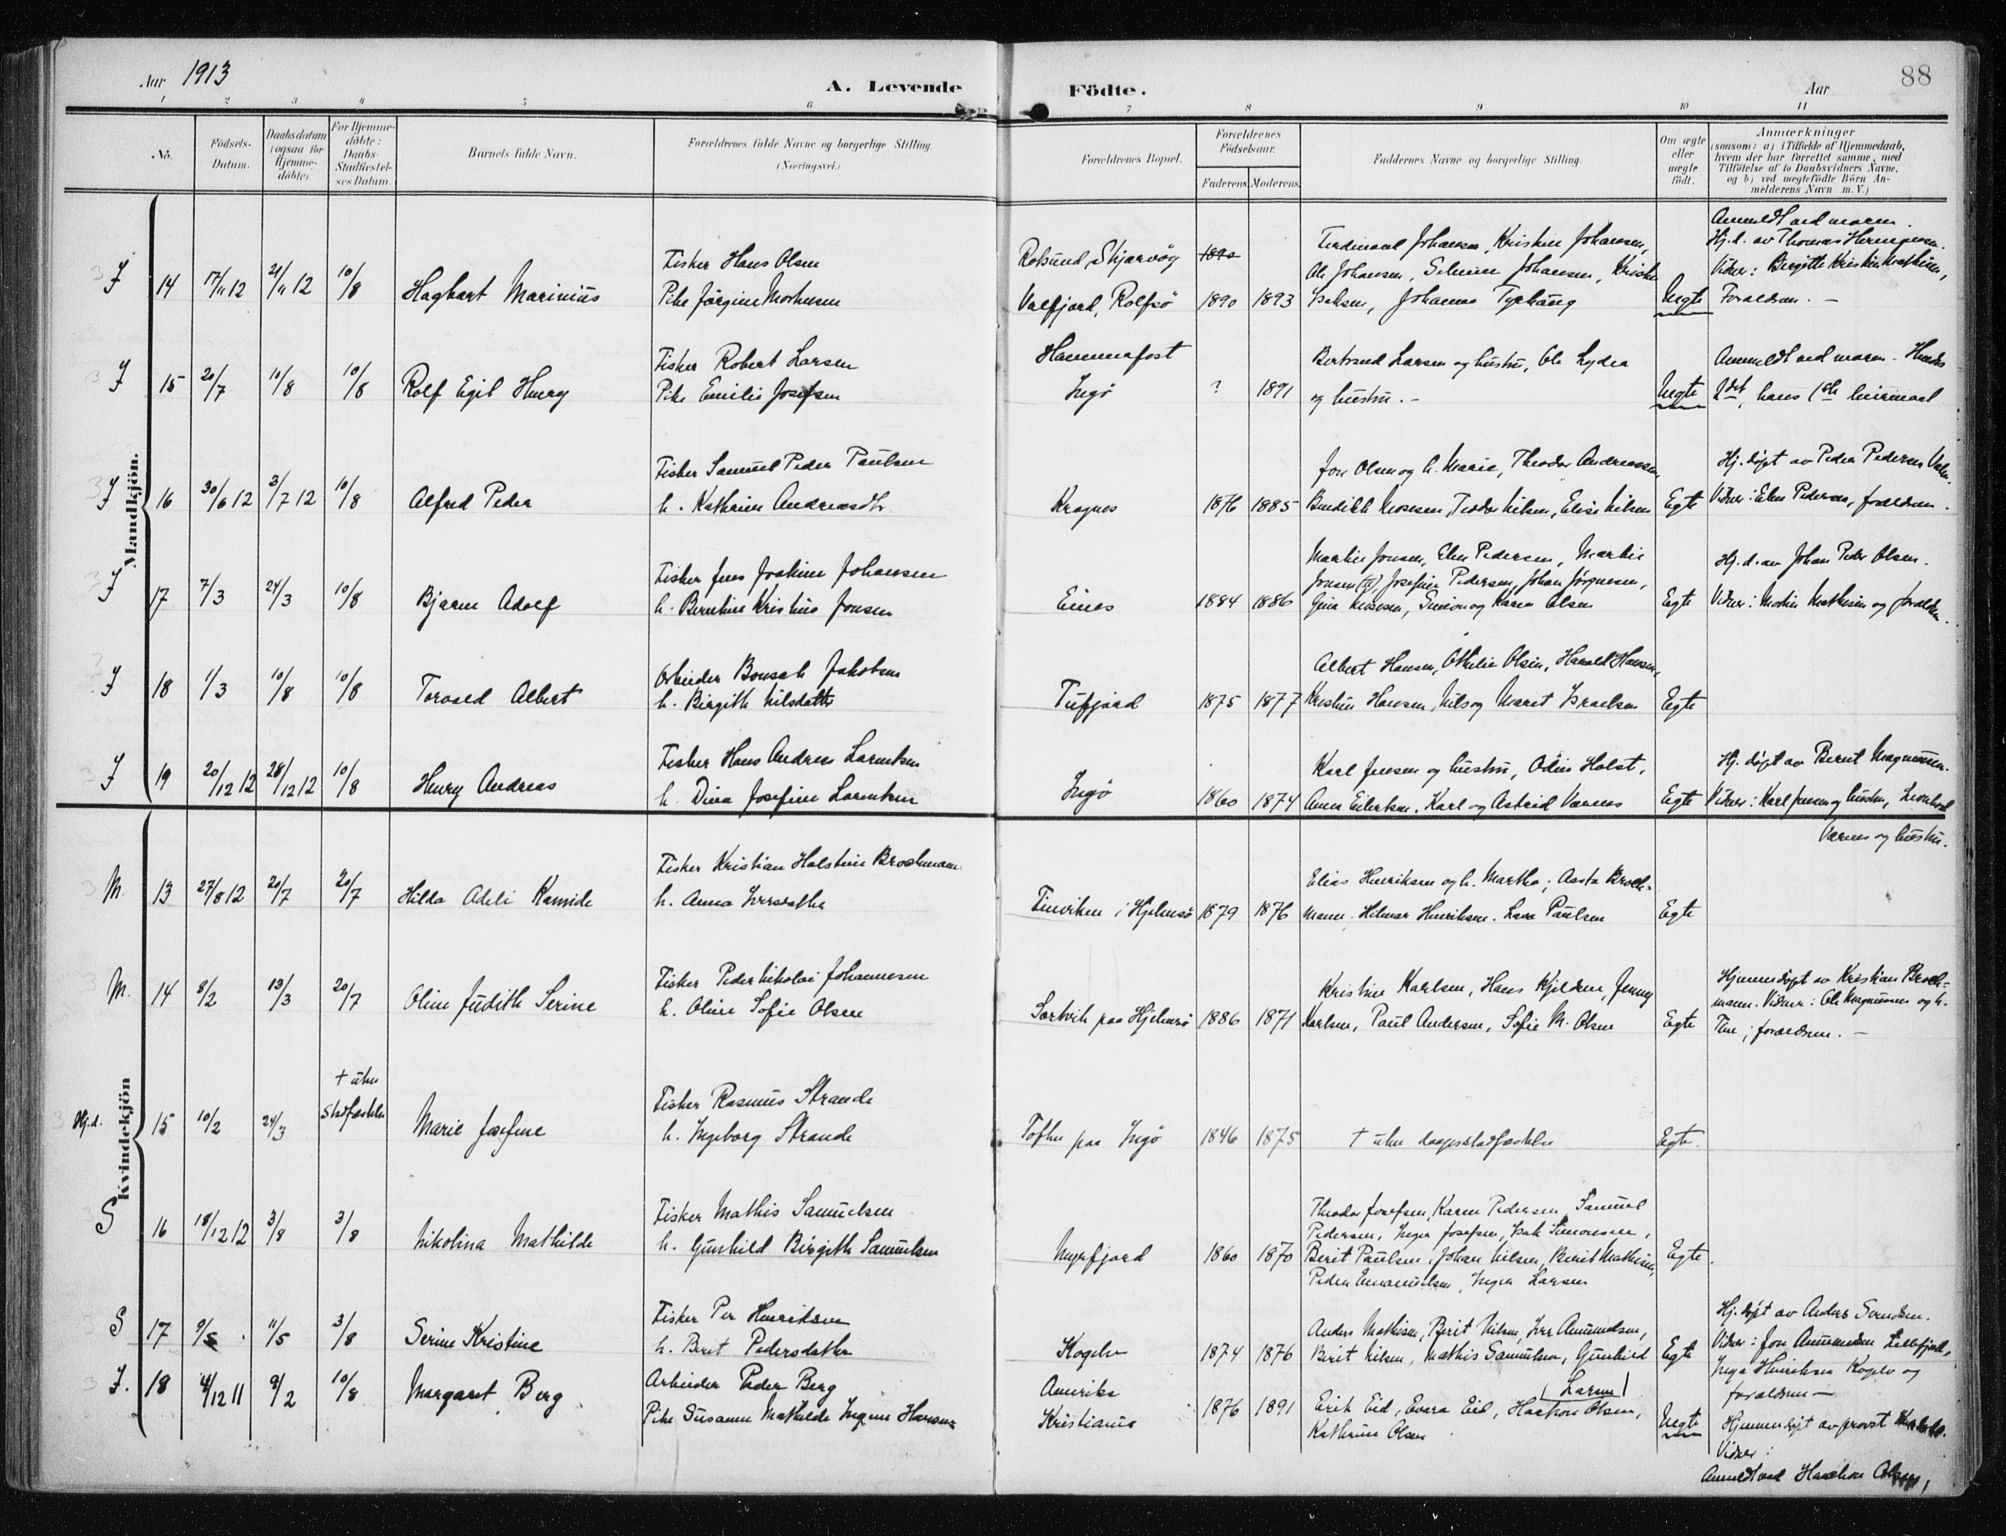 Aar 1913
A. Levende Födte.
Aar
88
1 2 3 4 5 6 7 8 9 10 11
No.
Födsels-Datum.
Daabsdatum (ogsaa for Hjemme-döbte).
For Hjemme-döbte: Daabs-Stadfæstel-ses Datum.
Barnets fulde Navn.
Forældrenes fulde Navne og borgerlige Stilling. (Næringsvei.)
Forældrenes Bopæl.
Forældrenes Födselsaar.
Faderens. Moderens.
Faddernes Navne og borgerlige Stilling.
Om ægte eller uægte födt.
Anmærkninger
(saasom: a) i Tilfælde af Hjemmedaab, hvem der har forrettet samme, med Tilföielse af to Daabsvidners Navne, og b) ved uægtefödte Börn An-melderens Navn m. V.)
Mandkjön.
I 14 17/11 12 21/11 12 10/8 Hagbart Marinius
Fisker Hans Olsen
Pike Jörgine
Rolsund, Skjærvøy
Valfjord, Rolfsø
1890
1890 1893
Ferdinand Johansen, Kristine Johansen,
Ole Johansen, Johansen,
Isaksen, Johannes
Uegte
Anmeldt ved moren.
Hj. d. av Thomas
Vidner: Birgitte Kristine Mathisen,
Forældrene. —
I 15 20/7 10/8 10/8 Rolf Egil Henry
Fisker Robert Larsen
Pike Emilie Josefsen
Hammerfest
Ingø
? 1891
Bertrand Larsen og hustru, Ole Lydra
og hustru. —
Uegte
Anmeldt ved moren - Hendes
2det, hans 1ste leiermaal
I 16 30/6 12 3/7 12 10/8 Alfred Peder
Fisker Samuel Peder Paulsen
h. Kathrine Andreasdtr
Kragnes
1876 1885
Jon Olsen og h. Marie, Theodor Andreassen,
Bendikk Mosesen, Teodor Nilsen, Elise Nilsen
Egte
Hj. døpt av Peder Pedersen
Vidner: Elen Pedersen, forældrene.
I 17 7/3 24/3 10/8 Bjarne Adolf
Fisker Jens Joakim Johansen
h. Berntine Kristine Jonsen
Eines
1884 1886
Martin Jonsen, Elen Pedersen, Martin
Jonsen (II) Josefine Pedersen, Johan Jørgensen,
Gina Mosesen, Simon og Karen Olsen
Egte
Hj. d. av Johan Peder Olsen.
Vidner: Martin Mathisen og forældrene.
I 18 1/3 10/8 10/8 Torvald Albert
Arbeider Jakobsen
h. Birgith Nilsdatter
Tufjord
1875 1877
Albert Hansen, Othilie Olsen, Harald Hansen,
Kristine Hansen, Nils og Marit Israelsen
Egte
I 19 20/12 12 28/12 12 10/8 Henry Andreas
Fisker Hans Andreas Larentsen
h. Dina Josefine Larentsen
Ingø
1860 1874
Karl Jensen og hustru, Odin Holst,
Anna Eilertsen, Karl og Astrid Varnes
Egte
Hj. døpt av Bernt Magnussen.
Vidner: Karl Jensen og hustru,
Varnes og hustru.
Kvindekjön
M. 13 27/8 12 20/7 20/7 Hilda Adeli
Fisker Kristian Holstein Brochmann
h. Anna
Finviken i Hjelmsø
1879 1876
Elias Henriksen og h. Martha; Aasta Broch-
mann; Helmar Henriksen. Lars Paulsen
Egte
M. 14 8/2 13/3 20/7 Oline Judith Serine
Fisker Peder Nikolai Johannesen
h. Oline Sofie Olsen
Sortvik paa Hjelmsø
1886 1871
Kristine Karlsen, Hans Kjeldsen, Jenny
Karlsen, Paul Andersen, Sofie M. Olsen
Egte
Hjemmedøpt av Kristian Broch-
mann. Vidner: Ole Magnussen og h.
forældrene. —
Hj.d. 15 10/2 24/3 † uten Stadfæstelse Marie Josefine
Fisker Rasmus Strande
h. Ingeborg Strande
Toften paa Ingø
1846 1875
† uten daapsstadfæstelse
Egte.
S 16 18/12 12 3/8 3/8 Nikolina Mathilde
Fisker Mathis Samuelsen
h. Gunhild Birgith Samuelsen
Myrfjord
1860 1870
Theodor Josefsen, Karen Pedersen, Samuel
Pedersen, Inger Josefsen, Isak Simonsen,
Berit Paulsen, Johan Nilsen, Berit Mathisen,
Peder Emanuelsen, Inger Larsen
Egte.
S 17 9/5 11/5 3/8 Serine Kristine
Fisker Per Henriksen
h. Berit Pedersdatter
Kogelv
1874 1876
Anders Mathisen, Berit Nilsen, Iver Amundsen,
Berit Nilsen, Mathis Samuelsen, Gunhild
(Larsen)
Egte
Hj. døpt av Anders Svendsen.
Vidner: Jon Amundsen Lillefjord,
Inga Henriksen Kogelv og
forældrene —
I. 18 4/12 11 9/2 10/8 Margaret Berg
Arbeider Peder Berg
Pike Susanne Mathilde Ingine Hansen
Amerika
Kristiania
1876 1891
Erik Eid, Evera Eid, Haakon Olsen,
Kathrine Olsen
Uegte
Hjemmedøpt av provst
Vidner:
Anmeldt ved Haakon Olsen,